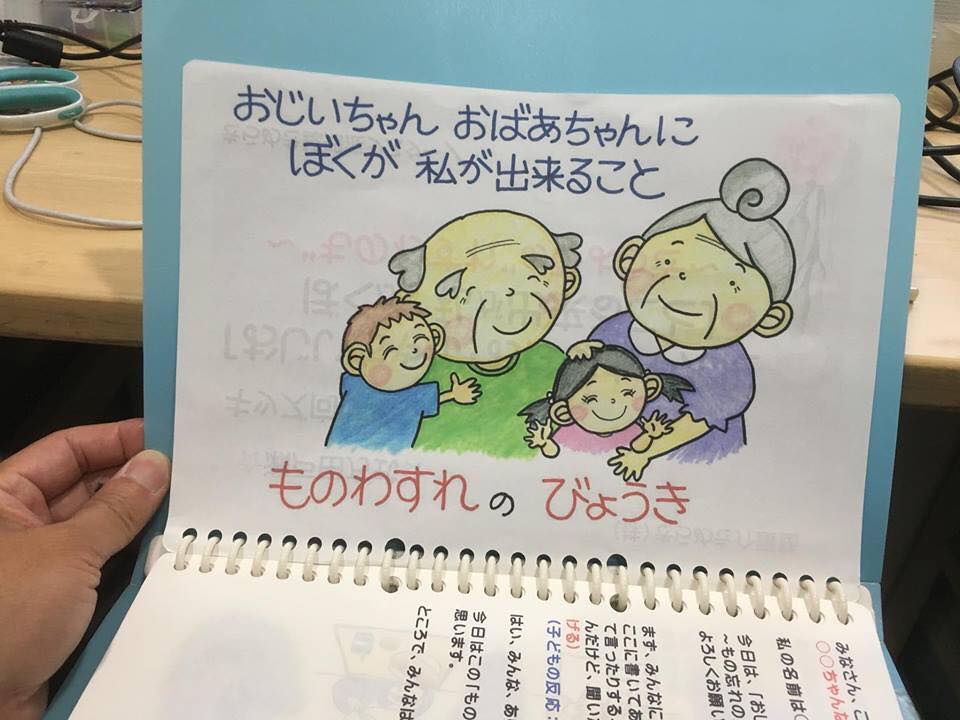 おじいちゃん おばあちゃんに
ぼくが 私が出来ること
ものわすれ の びょうき
みなさん、こ
○○ちゃんな
私の名前は○
今日は、「おじ
~もの忘れの
よろしくお願い
まず、みんなに
ここに書いてあ
て言ったりする
んだけど、聞い
げる)
(子どもの反応:
はい、みんな、あ
今日はこの「もの
思います。
ところで、みんなは